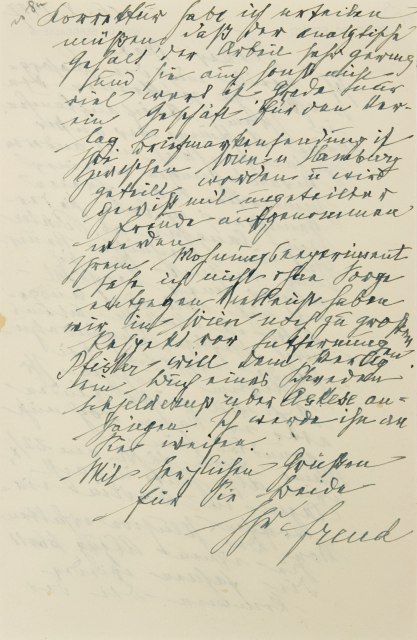 Korrektur habe ich urteilen
müssen, daß der analytische
Gehalt der Arbeit sehr gering
und sie auch sonst nicht
viel wert ist. Grade nur
ein Geschäft für den Ver-
lag. Briefmarkensendung ist
zwischen Wien u Hamburg
geteilt worden u wird
gewiß mit ungeteilter
Freude aufgenommen
werden.
Ihrem Wohnungsexperiment
sehe ich nicht ohne Sorge
entgegen. Vielleicht haben
wir in Wien noch zu großen
Respekt vor Entfernungen.
Pfister will dem Verlag
ein Buch eines Schweden
Schjelderup über Askese an-
hängen. Ich werde ihn an
Sie weisen.
Mit herzlichen Grüßen
für Sie beide
Ihr Freud